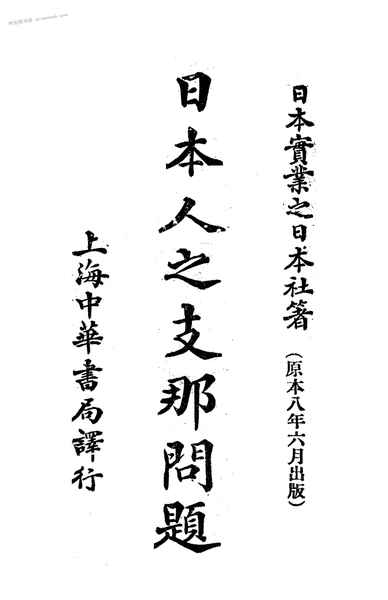 日本實業之日本社著
(原本八年六月出版)
日本人之支那問題
上海中華書局譯行